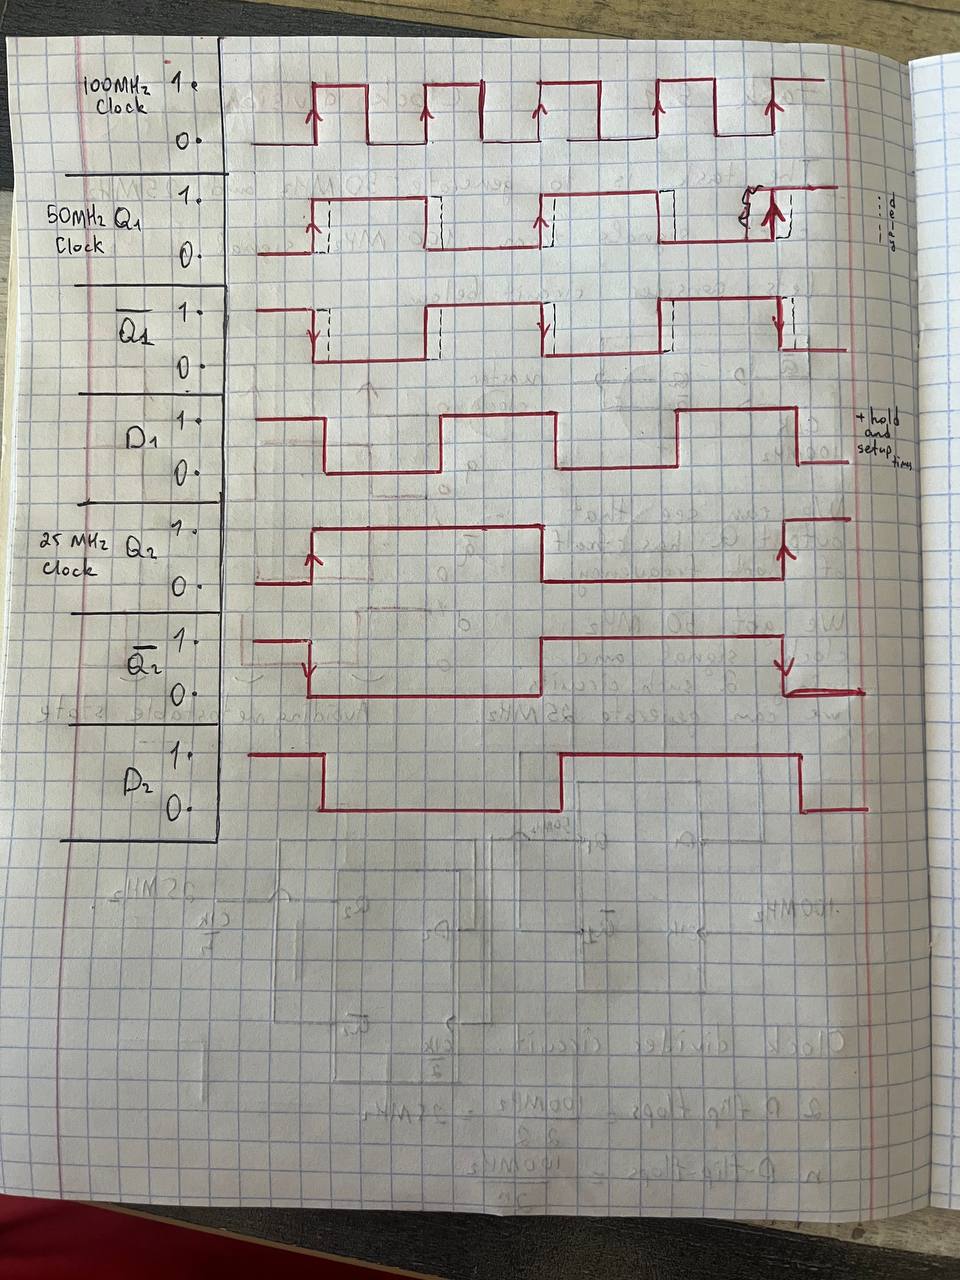 100MHz
Clock
1
0
50MHz Q1
Clock
1
0
Q1
1
0
D1
1
0
+ hold
and
setup
times
25 MHz Q2
Clock
1
0
Q2
1
0
D2
1
0